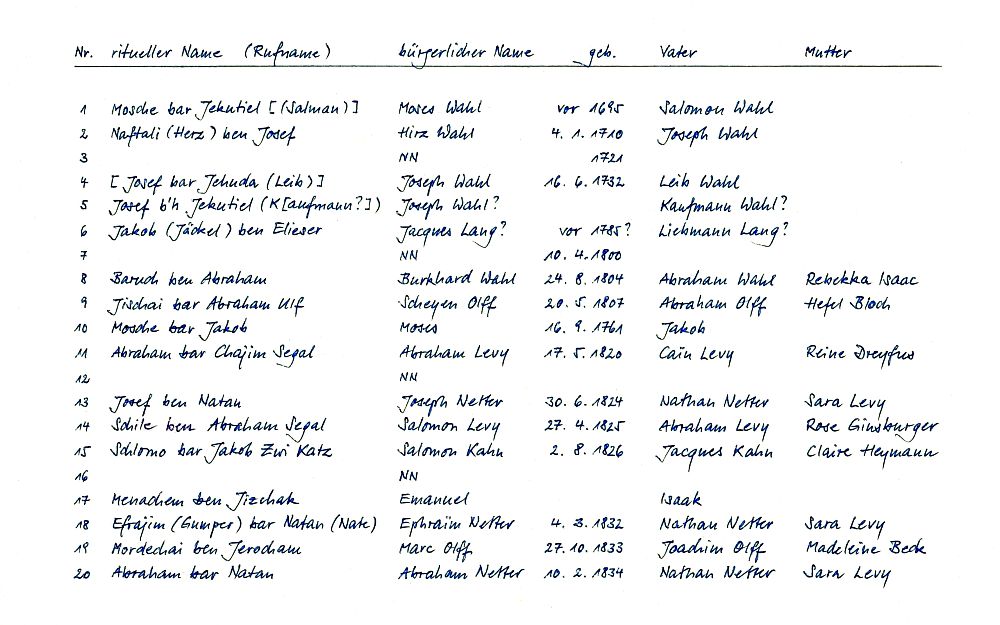 Nr. ritueller Name (Rufname) bürgerlicher Name geb. Vater Mutter
1 Mosche bar Jekutiel [(Salman)] Moses Wahl vor 1695 Salomon Wahl
2 Naftali (Herz) ben Josef Hirz Wahl 4. 1. 1710 Joseph Wahl
3 NN 1721
4 [Josef bar Jehuda (Leib)] Joseph Wahl 16. 6. 1732 Leib Wahl
5 Josef b'h Jekutiel (K[aufmann?]) Joseph Wahl? Kaufmann Wahl?
6 Jakob (Jäckel) ben Elieser Jacques Lang? vor 1785? Liebmann Lang?
7 NN 10. 4. 1800
8 Baruch ben Abraham Burkhard Wahl 24. 8. 1804 Abraham Wahl Rebekka Isaac
9 Jischai bar Abraham Ulf Scheyen Olff 20. 5. 1807 Abraham Olff Hefel Bloch
10 Mosche bar Jakob Moses 16. 9. 1761 Jakob
11 Abraham bar Chajim Segal Abraham Levy 17. 5. 1820 Caïn Levy Reine Dreyfus
12 NN
13 Josef ben Natan Joseph Netter 30. 6. 1824 Nathan Netter Sara Levy
14 Schile ben Abraham Segal Salomon Levy 27. 4. 1825 Abraham Levy Rose Ginsburger
15 Schlomo bar Jakob Zwi Katz Salomon Kahn 2. 8. 1826 Jacques Kahn Claire Heymann
16 NN
17 Menachem ben Jizchak Emanuel Isaak
18 Efrajim (Gumper) bar Natan (Nate) Ephraïm Netter 4. 3. 1832 Nathan Netter Sara Levy
19 Mordechai ben Jerocham Marc Olff 27. 10. 1833 Joachim Olff Madeleine Beck
20 Abraham bar Natan Abraham Netter 10. 2. 1834 Nathan Netter Sara Levy